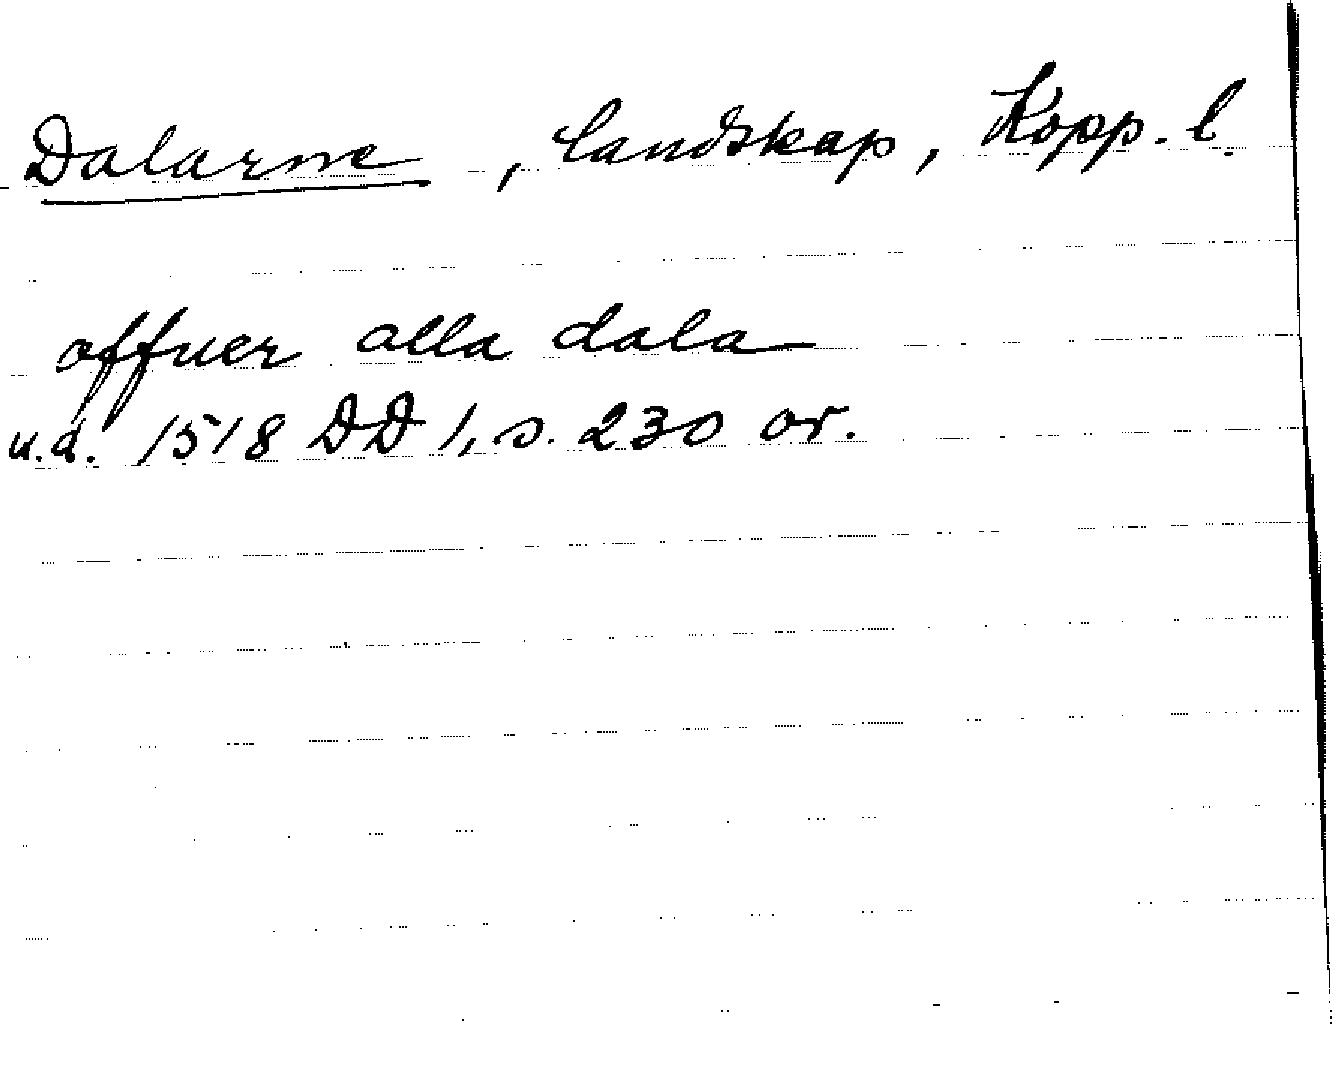 Dalarne , landskap, Kopp. l.
offuer alla dala
u.d. 1518 DD 1, s. 230 or.